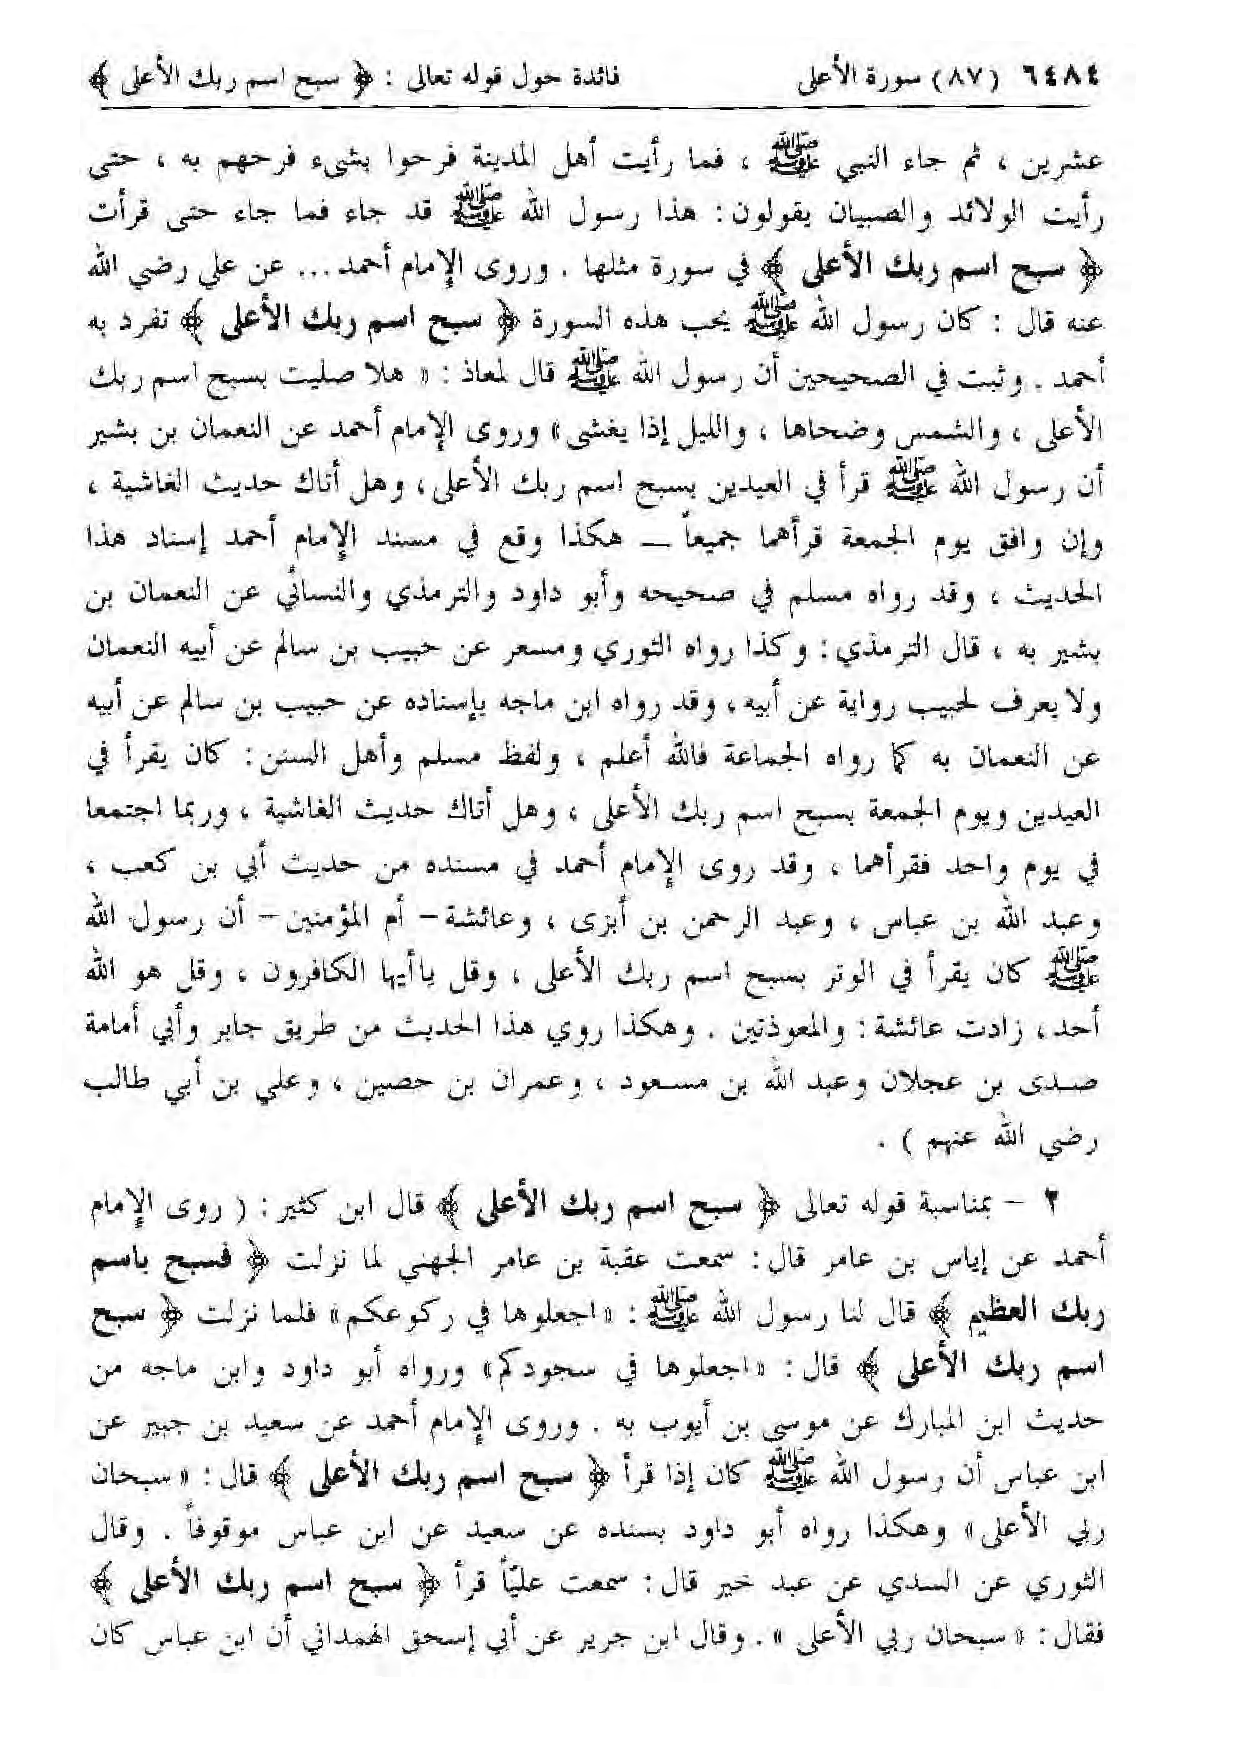 ٦٤٨٤ (٨٧) سورة الأعلى فائدة حول قوله تعالى : ﴿ سبح اسم ربك الأعلى ﴾
عشرين ، ثم جاء النبي ﷺ ، فما رأيت أهل المدينة فرحوا بشيء فرحهم به ، حتى
رأيت الولائد والصبيان يقولون : هذا رسول الله ﷺ قد جاء فما جاء حتى قرأت
﴿ سبح اسم ربك الأعلى ﴾ في سورة مثلها . وروى الإمام أحمد ... عن علي رضي الله
عنه قال : كان رسول الله ﷺ يحب هذه السورة ﴿ سبح اسم ربك الأعلى ﴾ تفرد به
أحمد . وثبت في الصحيحين أن رسول الله ﷺ قال لمعاذ : « هلا صليت بسبح اسم ربك
الأعلى ، والشمس وضحاها ، والليل إذا يغشى » وروى الإمام أحمد عن النعمان بن بشير
أن رسول الله ﷺ قرأ في العيدين بسبح اسم ربك الأعلى ، وهل أتاك حديث الغاشية ،
وإن وافق يوم الجمعة قرأهما جميعاً ــ هكذا وقع في مسند الإمام أحمد إسناد هذا
الحديث ، وقد رواه مسلم في صحيحه وأبو داود والترمذي والنسائي عن النعمان بن
بشير به ، قال الترمذي : وكذا رواه الثوري ومسعر عن حبيب بن سالم عن أبيه النعمان
ولا يعرف لحبيب رواية عن أبيه ، وقد رواه ابن ماجه بإسناده عن حبيب بن سالم عن أبيه
عن النعمان به كما رواه الجماعة فالله أعلم ، ولفظ مسلم وأهل السنن : كان يقرأ في
العيدين ويوم الجمعة بسبح اسم ربك الأعلى ، وهل أتاك حديث الغاشية ، وربما اجتمعا
في يوم واحد فقرأهما ، وقد روى الإمام أحمد في مسنده من حديث أبي بن كعب ،
وعبد الله بن عباس ، وعبد الرحمن بن أبزى ، وعائشة – أم المؤمنين – أن رسول الله
ﷺ كان يقرأ في الوتر بسبح اسم ربك الأعلى ، وقل ياأيها الكافرون ، وقل هو الله
أحد ، زادت عائشة : والمعوذتين . وهكذا روي هذا الحديث من طريق جابر وأبي أمامة
صدى بن عجلان وعبد الله بن مسعود ، وعمران بن حصين ، وعلي بن أبي طالب
رضي الله عنهم ) .
٢ – بمناسبة قوله تعالى ﴿ سبح اسم ربك الأعلى ﴾ قال ابن كثير : ( روى الإمام
أحمد عن إياس بن عامر قال : سمعت عقبة بن عامر الجهني لما نزلت ﴿ فسبح باسم
ربك العظيم ﴾ قال لنا رسول الله ﷺ : « اجعلوها في ركوعكم » فلما نزلت ﴿ سبح
اسم ربك الأعلى ﴾ قال : « اجعلوها في سجودكم » ورواه أبو داود وابن ماجه من
حديث ابن المبارك عن موسى بن أيوب به . وروى الإمام أحمد عن سعيد بن جبير عن
ابن عباس أن رسول الله ﷺ كان إذا قرأ ﴿ سبح اسم ربك الأعلى ﴾ قال : « سبحان
ربي الأعلى » وهكذا رواه أبو داود بسنده عن سعيد عن ابن عباس موقوفاً . وقال
الثوري عن السدي عن عبد خير قال : سمعت عليّاً قرأ ﴿ سبح اسم ربك الأعلى ﴾
فقال : « سبحان ربي الأعلى » . وقال ابن جرير عن أبي إسحق الهمداني أن ابن عباس كان